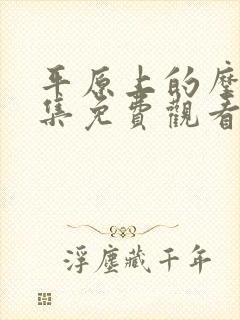 平原上的摩
集免費觀看
浮塵藏千年